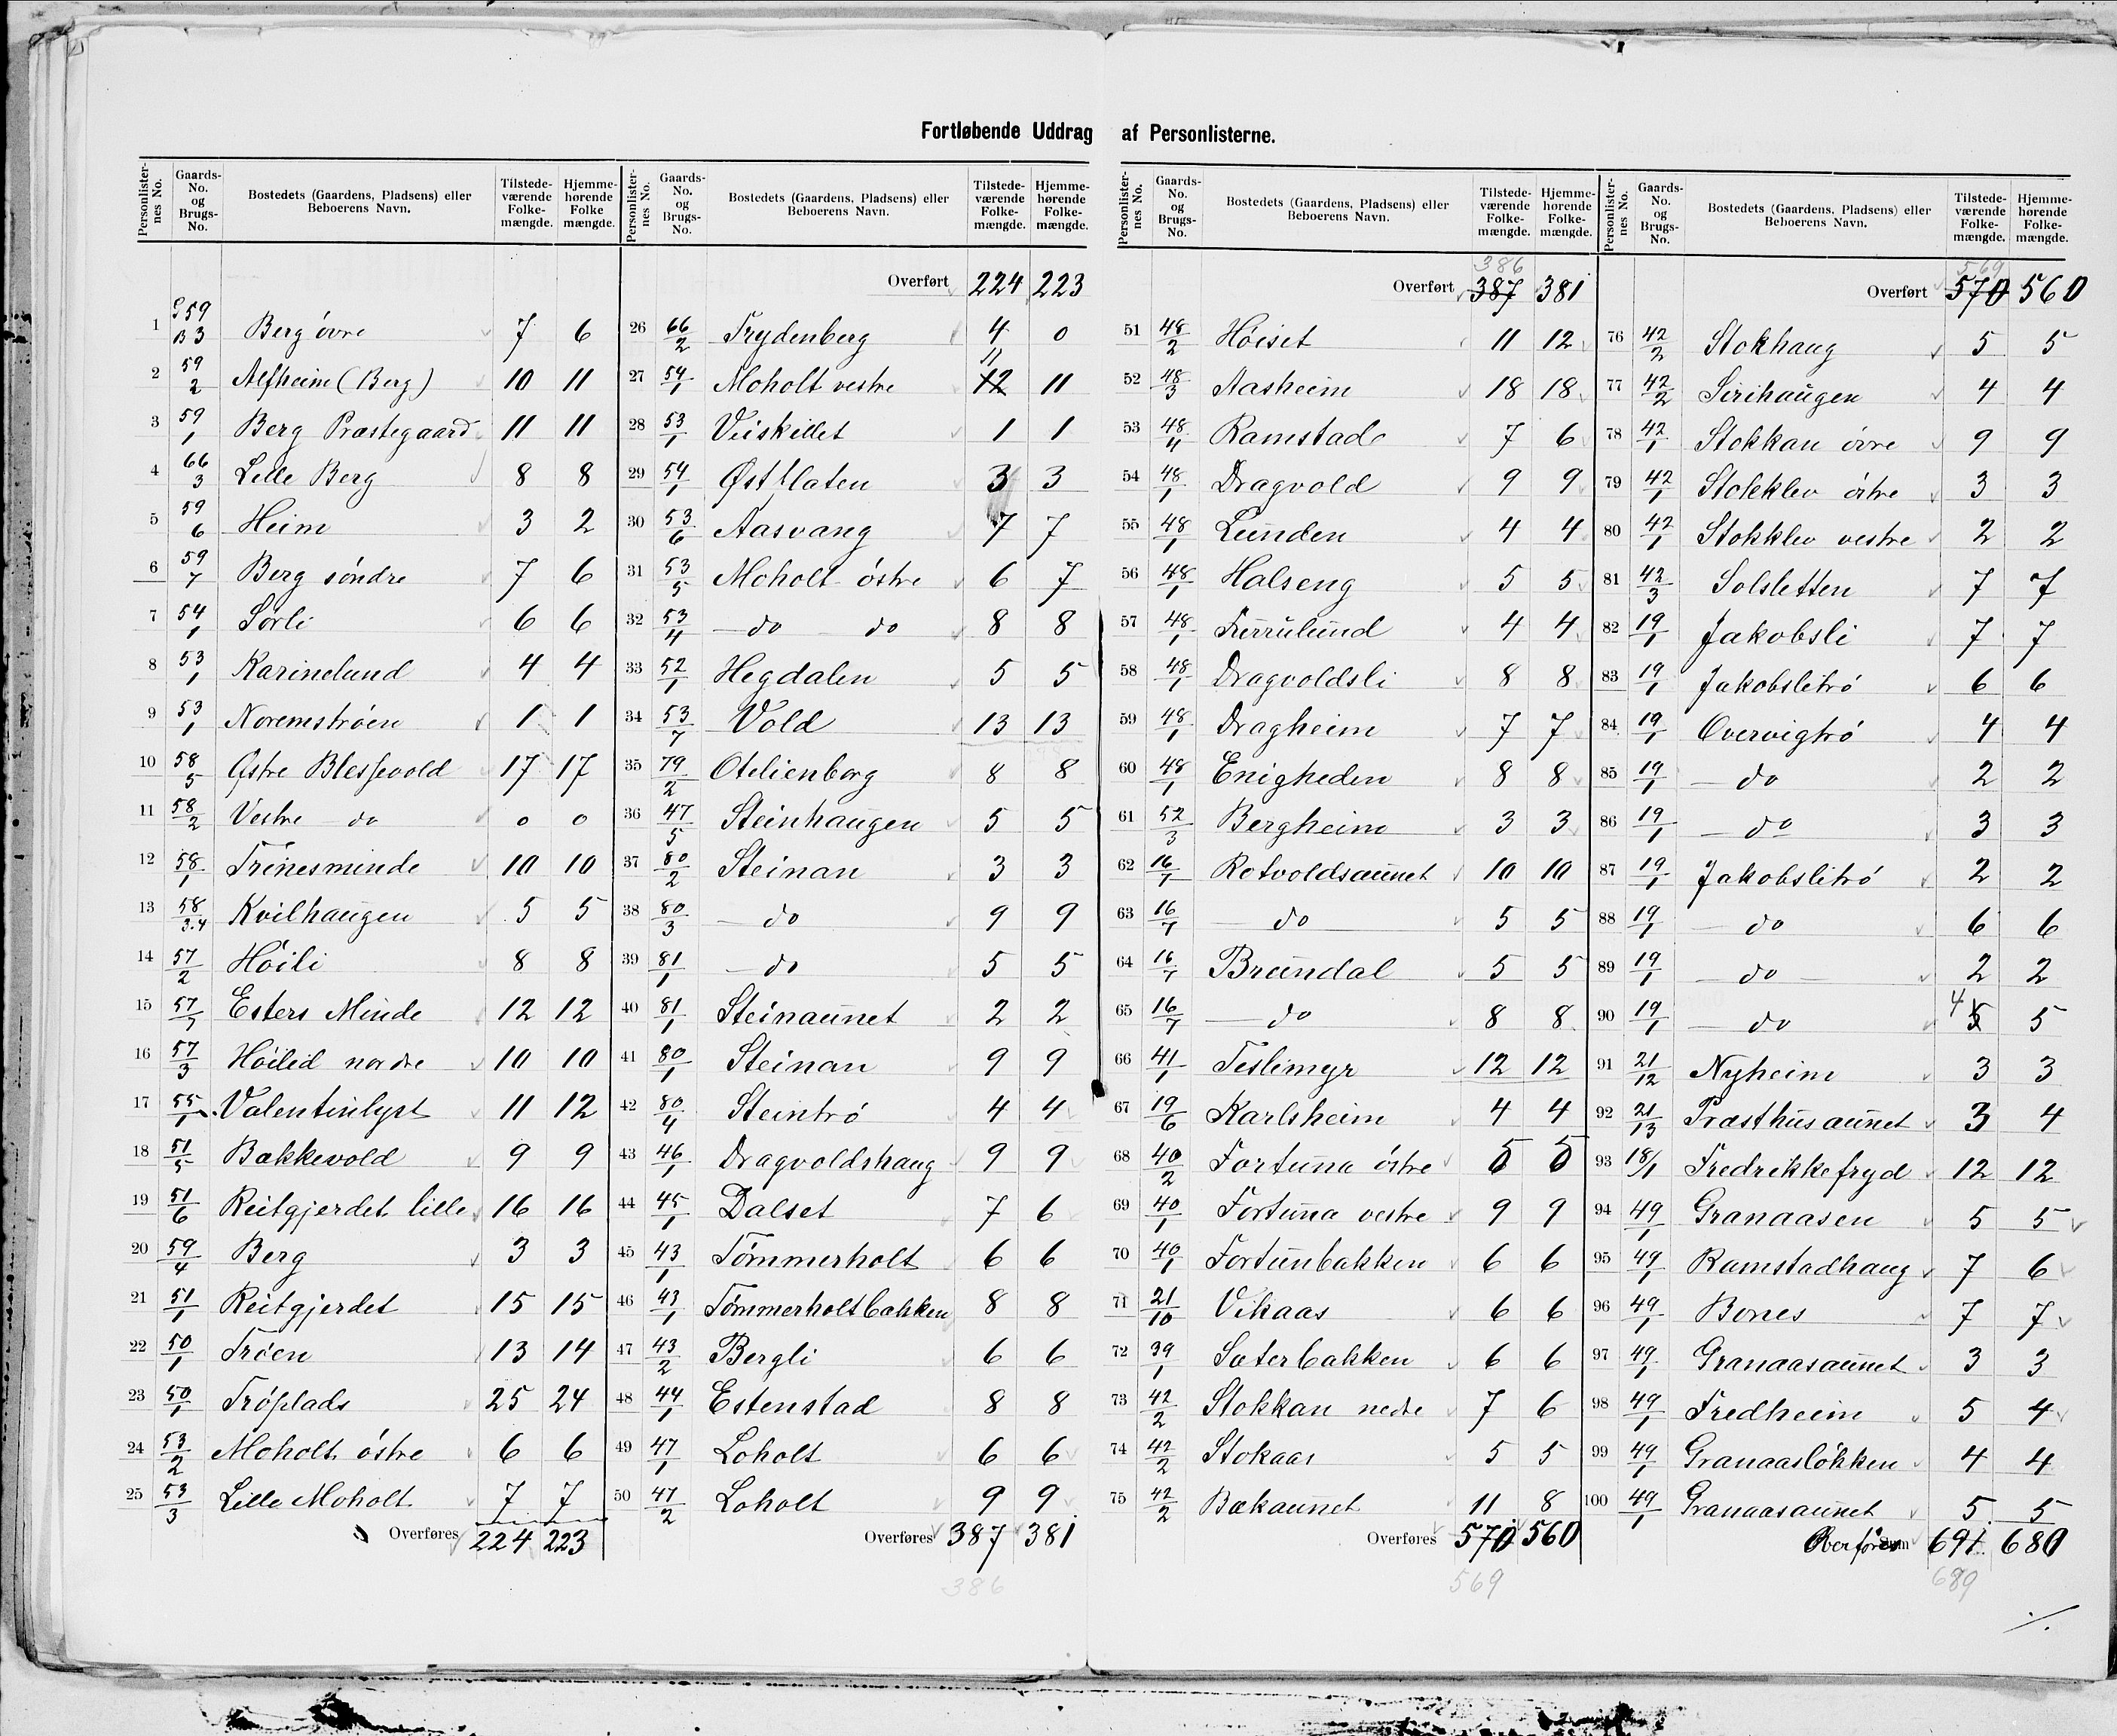 Fortløbende Uddrag af Personlisterne.
Personlister-nes No. Gaards-No. og Brugs-No. Bostedets (Gaardens, Pladsens) eller Beboerens Navn. Tilstede-værende Folke-mængde. Hjemme-hørende Folke mængde.
1 G 59 B 3 Berg övre 7 6
2 59/2 Alfheim (Berg) 10 11
3 59/1 Berg Præstegaard 11 11
4 66/3 Lille Berg 8 8
5 59/6 Heim 3 2
6 59/7 Berg söndre 7 6
7 54/1 Sörli 6 6
8 53/1 Karinelund 4 4
9 53/1 Noremströen 1 1
10 58/5 Östre Blessevold 17 17
11 58/2 Vestre do 0 0
12 58/1 Trinesminde 10 10
13 58/3.4 Kvilhaugen 5 5
14 57/2 Höili 8 8
15 57/7 Esters Minde 12 12
16 57/3 Höilid nordre 10 10
17 55/1 Valentinlyst 11 12
18 51/5 Bakkevold 9 9
19 51/6 Reitgjerdet lille 16 16
20 59/4 Berg 3 3
21 51/1 Reitgjerdet 15 15
22 50/1 Tröen 13 14
23 50/1 Tröplads 25 24
24 53/2 Moholt östre 6 6
25 53/3 Lille Moholt 7 7
Overføres 224 223
Personlister-nes No. Gaards-No. og Brugs-No. Bostedets (Gaardens, Pladsens) eller Beboerens Navn. Tilstede-værende Folke-mængde. Hjemme-hørende Folke-mængde.
Overført 224 223
26 66/2 Frydenberg 4 0
27 54/1 Moholt vestre 12 11 11
28 53/1 Veiskillet 1 1
29 54/1 Östflaten 3 3
30 53/6 Aasvang 7 7
31 53/5 Moholt östre 6 7
32 53/4 do do 8 8
33 52/1 Hegdalen 5 5
34 53/7 Vold 13 13
35 79/2 Otelienborg 8 8
36 47/5 Steinhaugen 5 5
37 80/2 Steinan 3 3
38 80/3 do 9 9
39 81/1 do 5 5
40 81/1 Steinaunet 2 2
41 80/1 Steinan 9 9
42 80/4 Steintrö 4 4
43 46/1 Dragvoldshaug 9 9
44 45/1 Dalset 7 6
45 43/1 Tömmerholt 6 6
46 43/1 Tömmerholtbakken 8 8
47 43/2 Bergli 6 6
48 44/1 Estenstad 8 8
49 47/1 Loholt 6 6
50 47/2 Loholt 9 9
Overføres 387 381
386
Personlister-nes No. Gaards-No. og Brugs-No. Bostedets (Gaardens, Pladsens) eller Beboerens Navn. Tilstede-værende Folke-mængde. Hjemme-hørende Folke-mængde.
386
Overført 387 381
51 48/2 Höiset 11 12
52 48/3 Aasheim 18 18
53 48/4 Ramstad 7 6
54 48/1 Dragvold 9 9
55 48/1 Lunden 4 4
56 48/1 Halseng 5 5
57 48/1 Furrulund 4 4
58 48/1 Dragvoldsli 8 8
59 48/1 Dragheim 7 7
60 48/1 Enigheden 8 8
61 52/3 Bergheim 3 3
62 16/7 Rotvoldsaunet 10 10
63 16/7 do 5 5
64 16/7 Brundal 5 5
65 16/7 do 8 8
66 41/1 Teslimyr 12 12
67 19/6 Karlsheim 4 4
68 40/2 Fortuna östre 5 5
69 40/1 Fortuna vestre 9 9
70 40/1 Fortunbakken 6 6
71 21/10 Vikaas 6 6
72 39/1 Sæterbakken 6 6
73 42/2 Stokkan nedre 7 6
74 42/2 Stokaas 5 5
75 42/2 Bækaunet 11 8
Overføres 570 560
569
Personlister-nes No. Gaards-No. og Brugs-No. Bostedets (Gaardens, Pladsens) eller Beboerens Navn. Tilstede-værende Folke-mængde. Hjemme-hørende Folke-mængde.
569
Overført 570 560
76 42/2 Stokhaug 5 5
77 42/2 Sirihaugen 4 4
78 42/1 Stokkan övre 9 9
79 42/1 Stokklev östre 3 3
80 42/1 Stokklev vestre 2 2
81 42/3 Solsletten 7 7
82 19/1 Jakobsli 7 7
83 19/1 Jakobslitrö 6 6
84 19/1 Overvigtrö 4 4
85 19/1 do 2 2
86 19/1 do 3 3
87 19/1 Jakobslitrö 2 2
88 19/1 do 6 6
89 19/1 do 2 2
90 19/1 do 4 5 5
91 21/12 Nyheim 3 3
92 21/13 Præsthusaunet 3 4
93 18/1 Fredrikkefryd 12 12
94 49/1 Granaasen 5 5
95 49/1 Ramstadhaug 7 6
96 49/1 Bones 7 7
97 49/1 Granaasaunet 3 3
98 49/1 Fredheim 5 4
99 49/1 Granaaslökken 4 4
100 49/1 Granaasaunet 5 5
Overføres 691 680
689